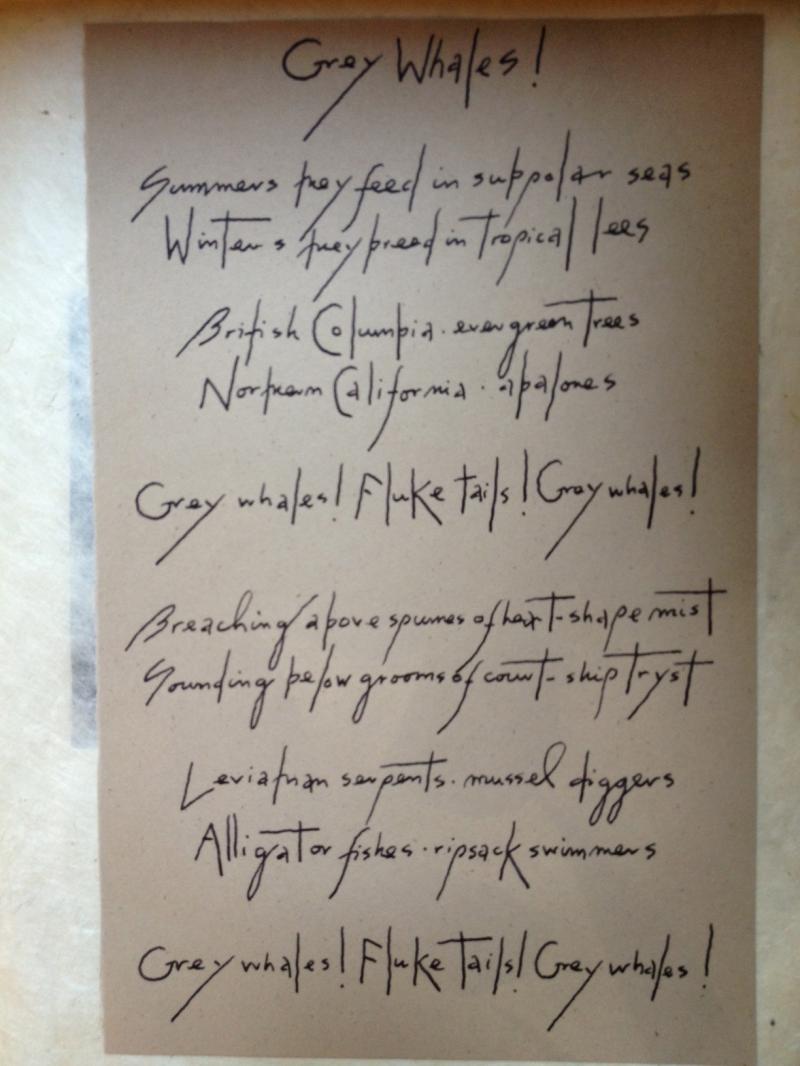 Grey Whales!
Summers they feed in subpolar seas
Winters they breed in Tropical lees
British Columbia · evergreen Trees
Northern California · abalones
Grey whales! Fluke Tails! Grey whales!
Breaching above spumes of heart-shape mist
Sounding below grooms of court-ship Tryst
Leviathan serpents · mussel diggers
Alligator fishes · ripsack swimmers
Grey whales! Fluke Tails! Grey whales!